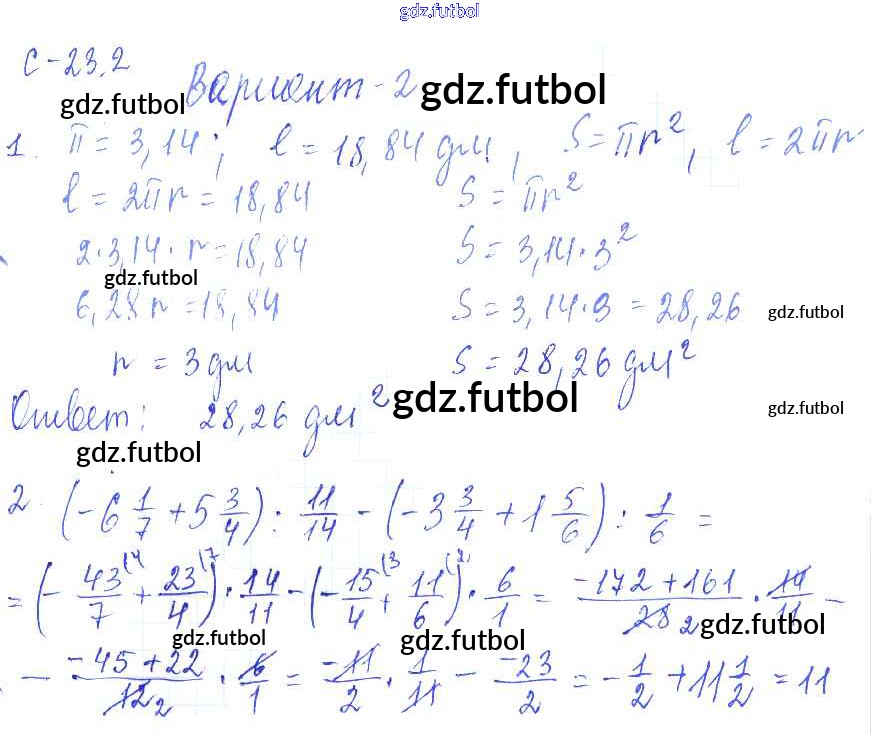 gdz.futbol
С-23.2
gdz.futbol Вариант-2 gdz.futbol
1. π = 3,14; l = 18,84 дм, S = πr², l = 2πr
l = 2πr = 18,84 S = πr²
2·3,14·r = 18,84 S = 3,14·3²
gdz.futbol
6,28r = 18,84 S = 3,14·9 = 28,26 gdz.futbol
r = 3 дм S = 28,26 дм²
Ответ: 28,26 дм² gdz.futbol gdz.futbol
gdz.futbol
2. (-6 1/7 + 5 3/4) : 11/14 - (-3 3/4 + 1 5/6) : 1/6 =
= (-43/7 (4 + 23/4 (7) · 14/11 - (-15/4 (3 + 11/6 (2) · 6/1 = (-172+161)/28 2 · 14/11 -
gdz.futbol gdz.futbol gdz.futbol
- (-45+22)/12 2 · 6/1 = -11/2 · 1/11 - -23/2 = -1/2 + 11 1/2 = 11